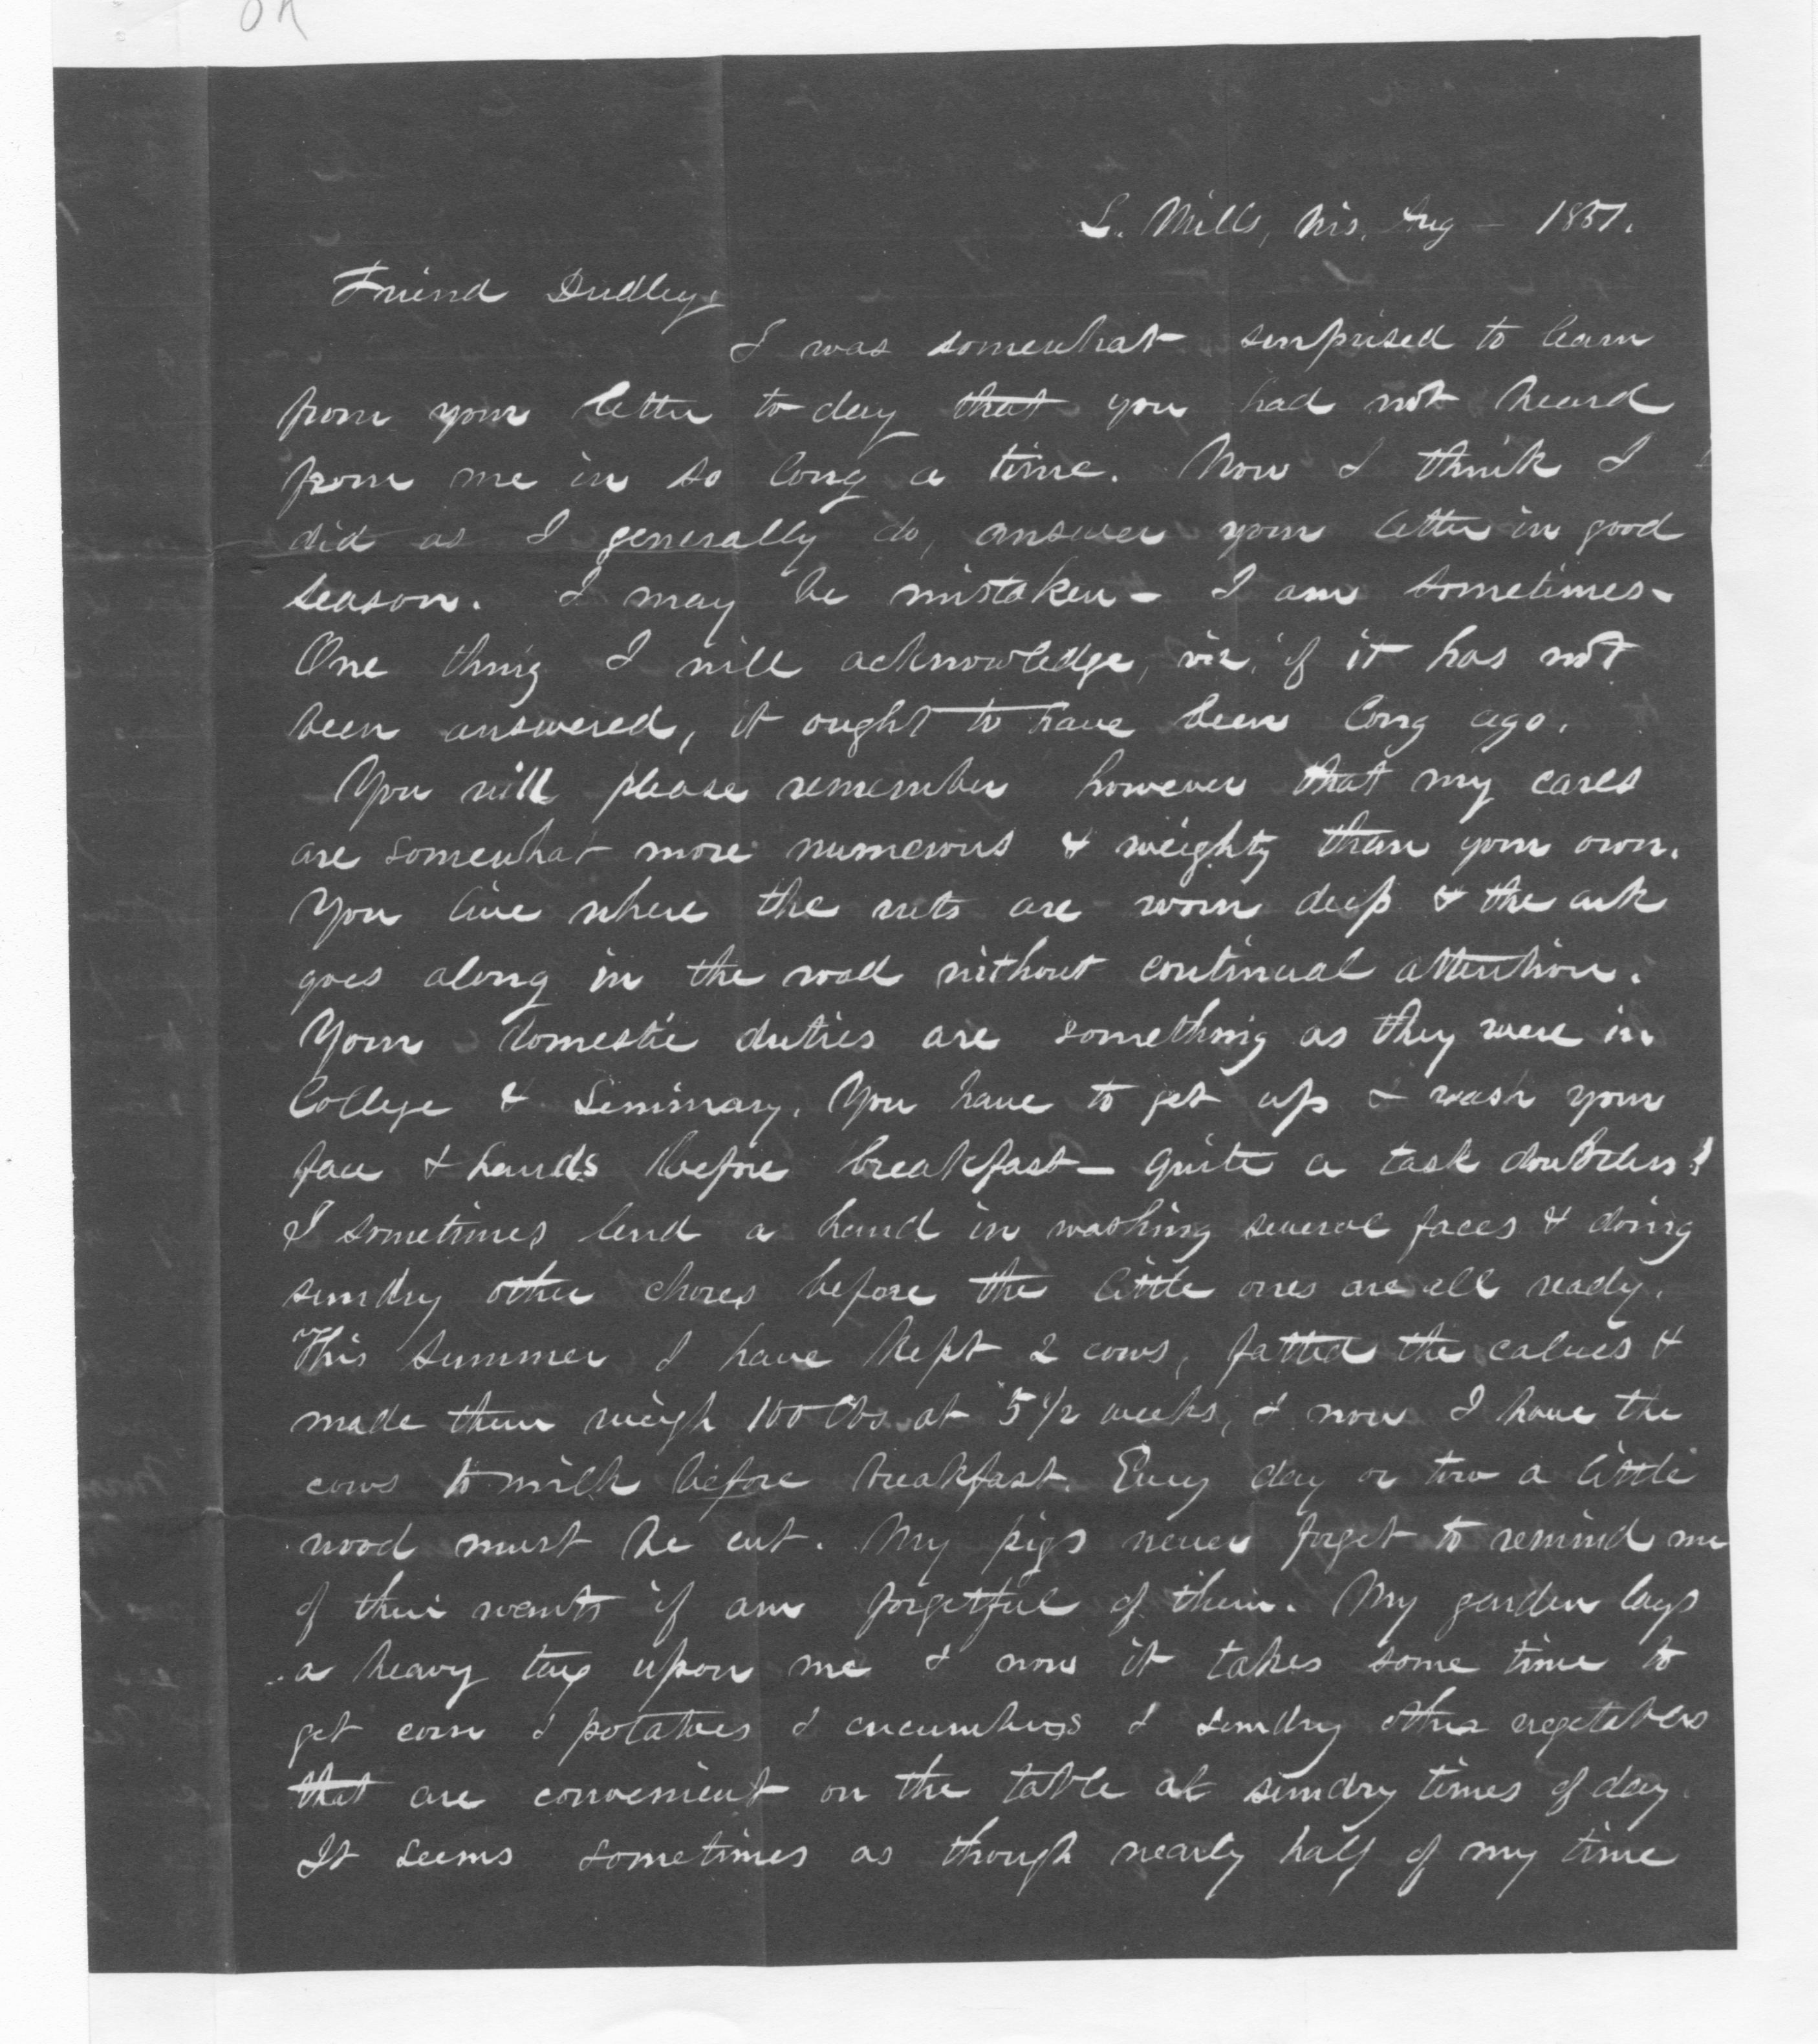 OK
L. Mills, Wis, Aug – 1857.
Friend Dudley,
I was somewhat surprised to learn
from your letter to-day that you had not heard
from me in so long a time. Now I think I
did as I generally do, answer your letter in good
season. I may be mistaken – I am sometimes –
One thing I will acknowledge, viz, if it has not
been answered, it ought to have been long ago.
You will please remember however that my cares
are somewhat more numerous & weighty than your own.
You live where the ruts are worn deep & the ark
goes along in the road without continual attention.
Your domestic duties are something as they were in
College & Seminary. You have to get up & wash your
face & hands before breakfast – quite a task doubtless!
I sometimes lend a hand in washing several faces & doing
sundry other chores before the little ones are all ready.
This summer I have kept 2 cows, fatted the calves &
made them weigh 100 lbs. at 5 1/2 weeks, & now I have the
cows to milk before breakfast. Every day or two a little
wood must be cut. My pigs never forget to remind me
of their wants if am forgetful of them. My garden lays
a heavy tax upon me & now it takes some time to
get corn & potatoes & cucumbers & sundry other vegetables
that are convenient on the table at sundry times of day.
It seems sometimes as though nearly half of my time